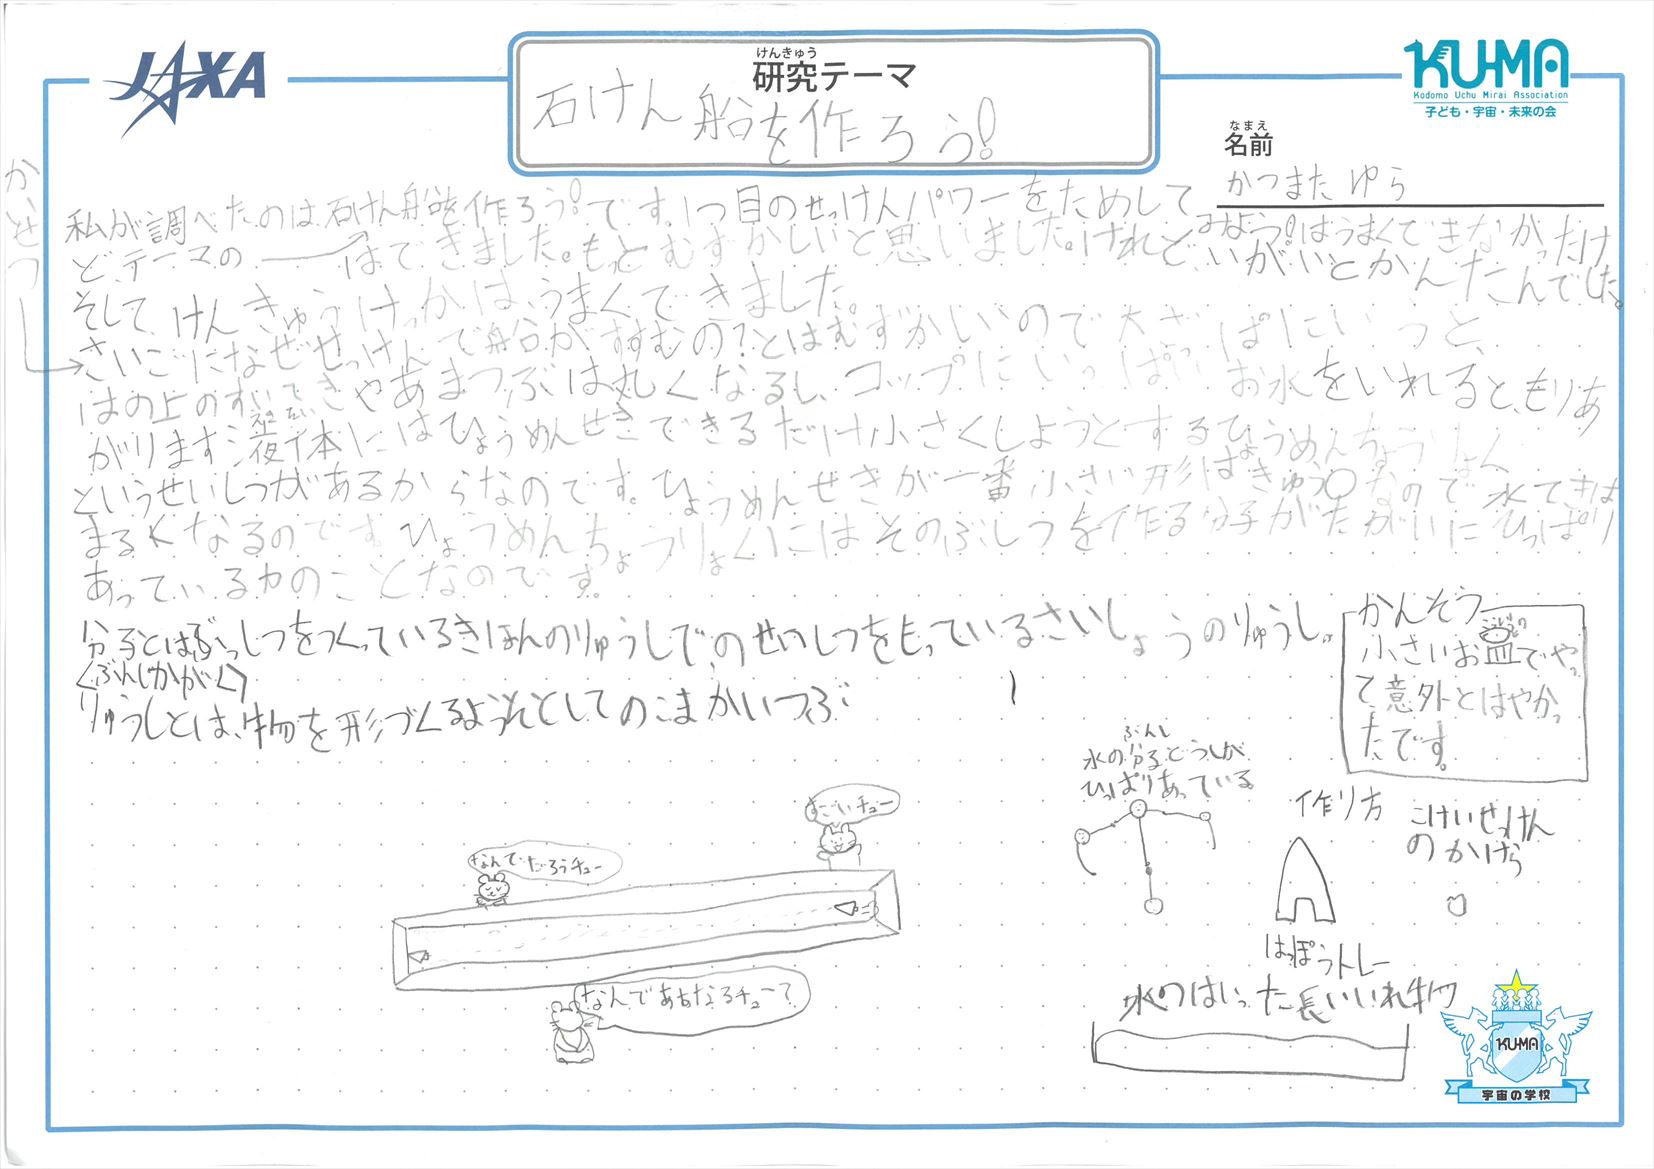 JAXA
けんきゅう
研究テーマ
石けん船を作ろう!
KU-MA
Kodomo Uchu Mirai Association
子ども・宇宙・未来の会
なまえ
名前
かつまた ゆら
かせつ
私が調べたのは石けん船を作ろう!です。1つ目のせっけんパワーをためして
みよう!はうまくできなかったけ
ど、テーマの はできました。もっとむずかしいと思いました。けれど、いがいとかんたんでした。
そして、けんきゅうけっかは、うまくできました。
さいごになぜせっけんで船がすすむの?とはむずかしいので大ざっぱにいうと、
はの上のすいてきやあまつぶは丸くなるし、コップにいっぱいお水をいれると、もりあ
がります
えきたい
液体にはひょうめんせきをできるだけ小さくしようとするひょうめんちょうりょく
というせいしつがあるからなのです。ひょうめんせきが一番小さい形はきゅう○なので水てきは
まるくなるのです。ひょうめんちょうりょくにはそのぶしつを作る分子がたがいにひっぱり
あっている力のことなのです。
分子とはぶっしつをつくっているきほんのりゅうしで、のせいしつをもっているさいしょうのりゅうし。
<ぶんしかがく>
りゅうしとは、物を形づくるようそとしてのこまかいつぶ
かんそう
小さいお皿でやっ
て意外とはやかっ
たです。
ぶんし
水の分子どうしが
ひっぱりあっている
作り方
こけいせっけん
のかけら
はっぽうトレー
水のはいった長いいれ物
すごいチュー
なんでだろうチュー
なんでああなるチュー?
KU-MA
宇宙の学校